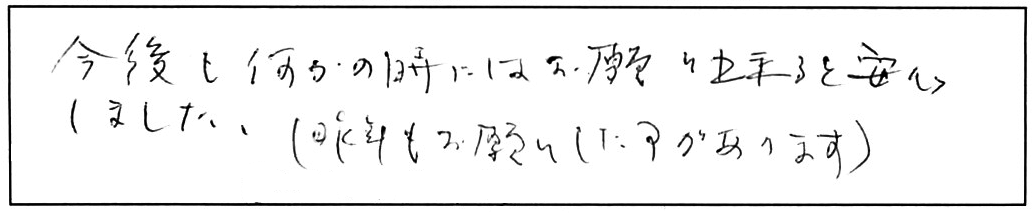 今後も何かの時にはお願い出来ると安心
しました、(昨年もお願いした事があります)